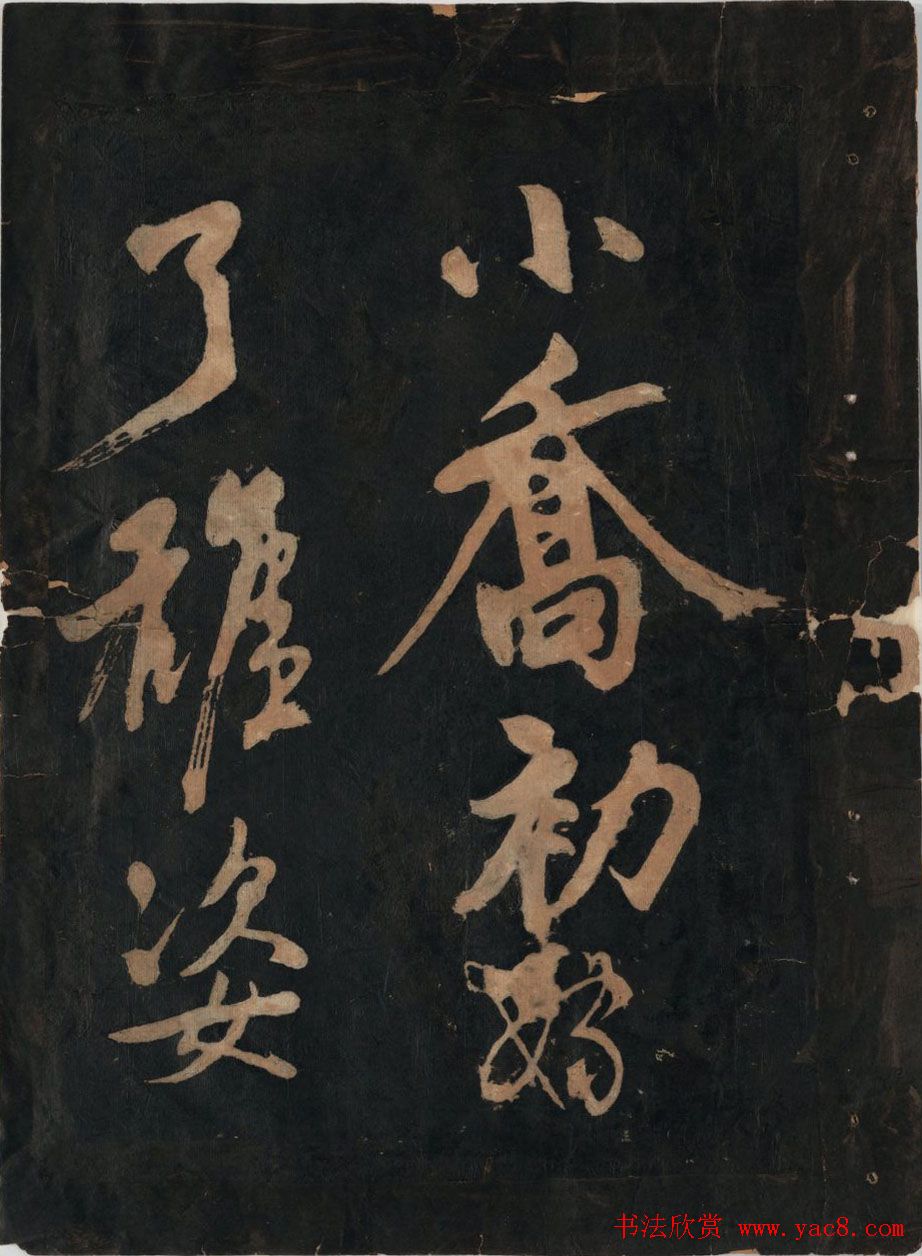 小喬初嫁
了雄姿
书法欣赏 www.yac8.com